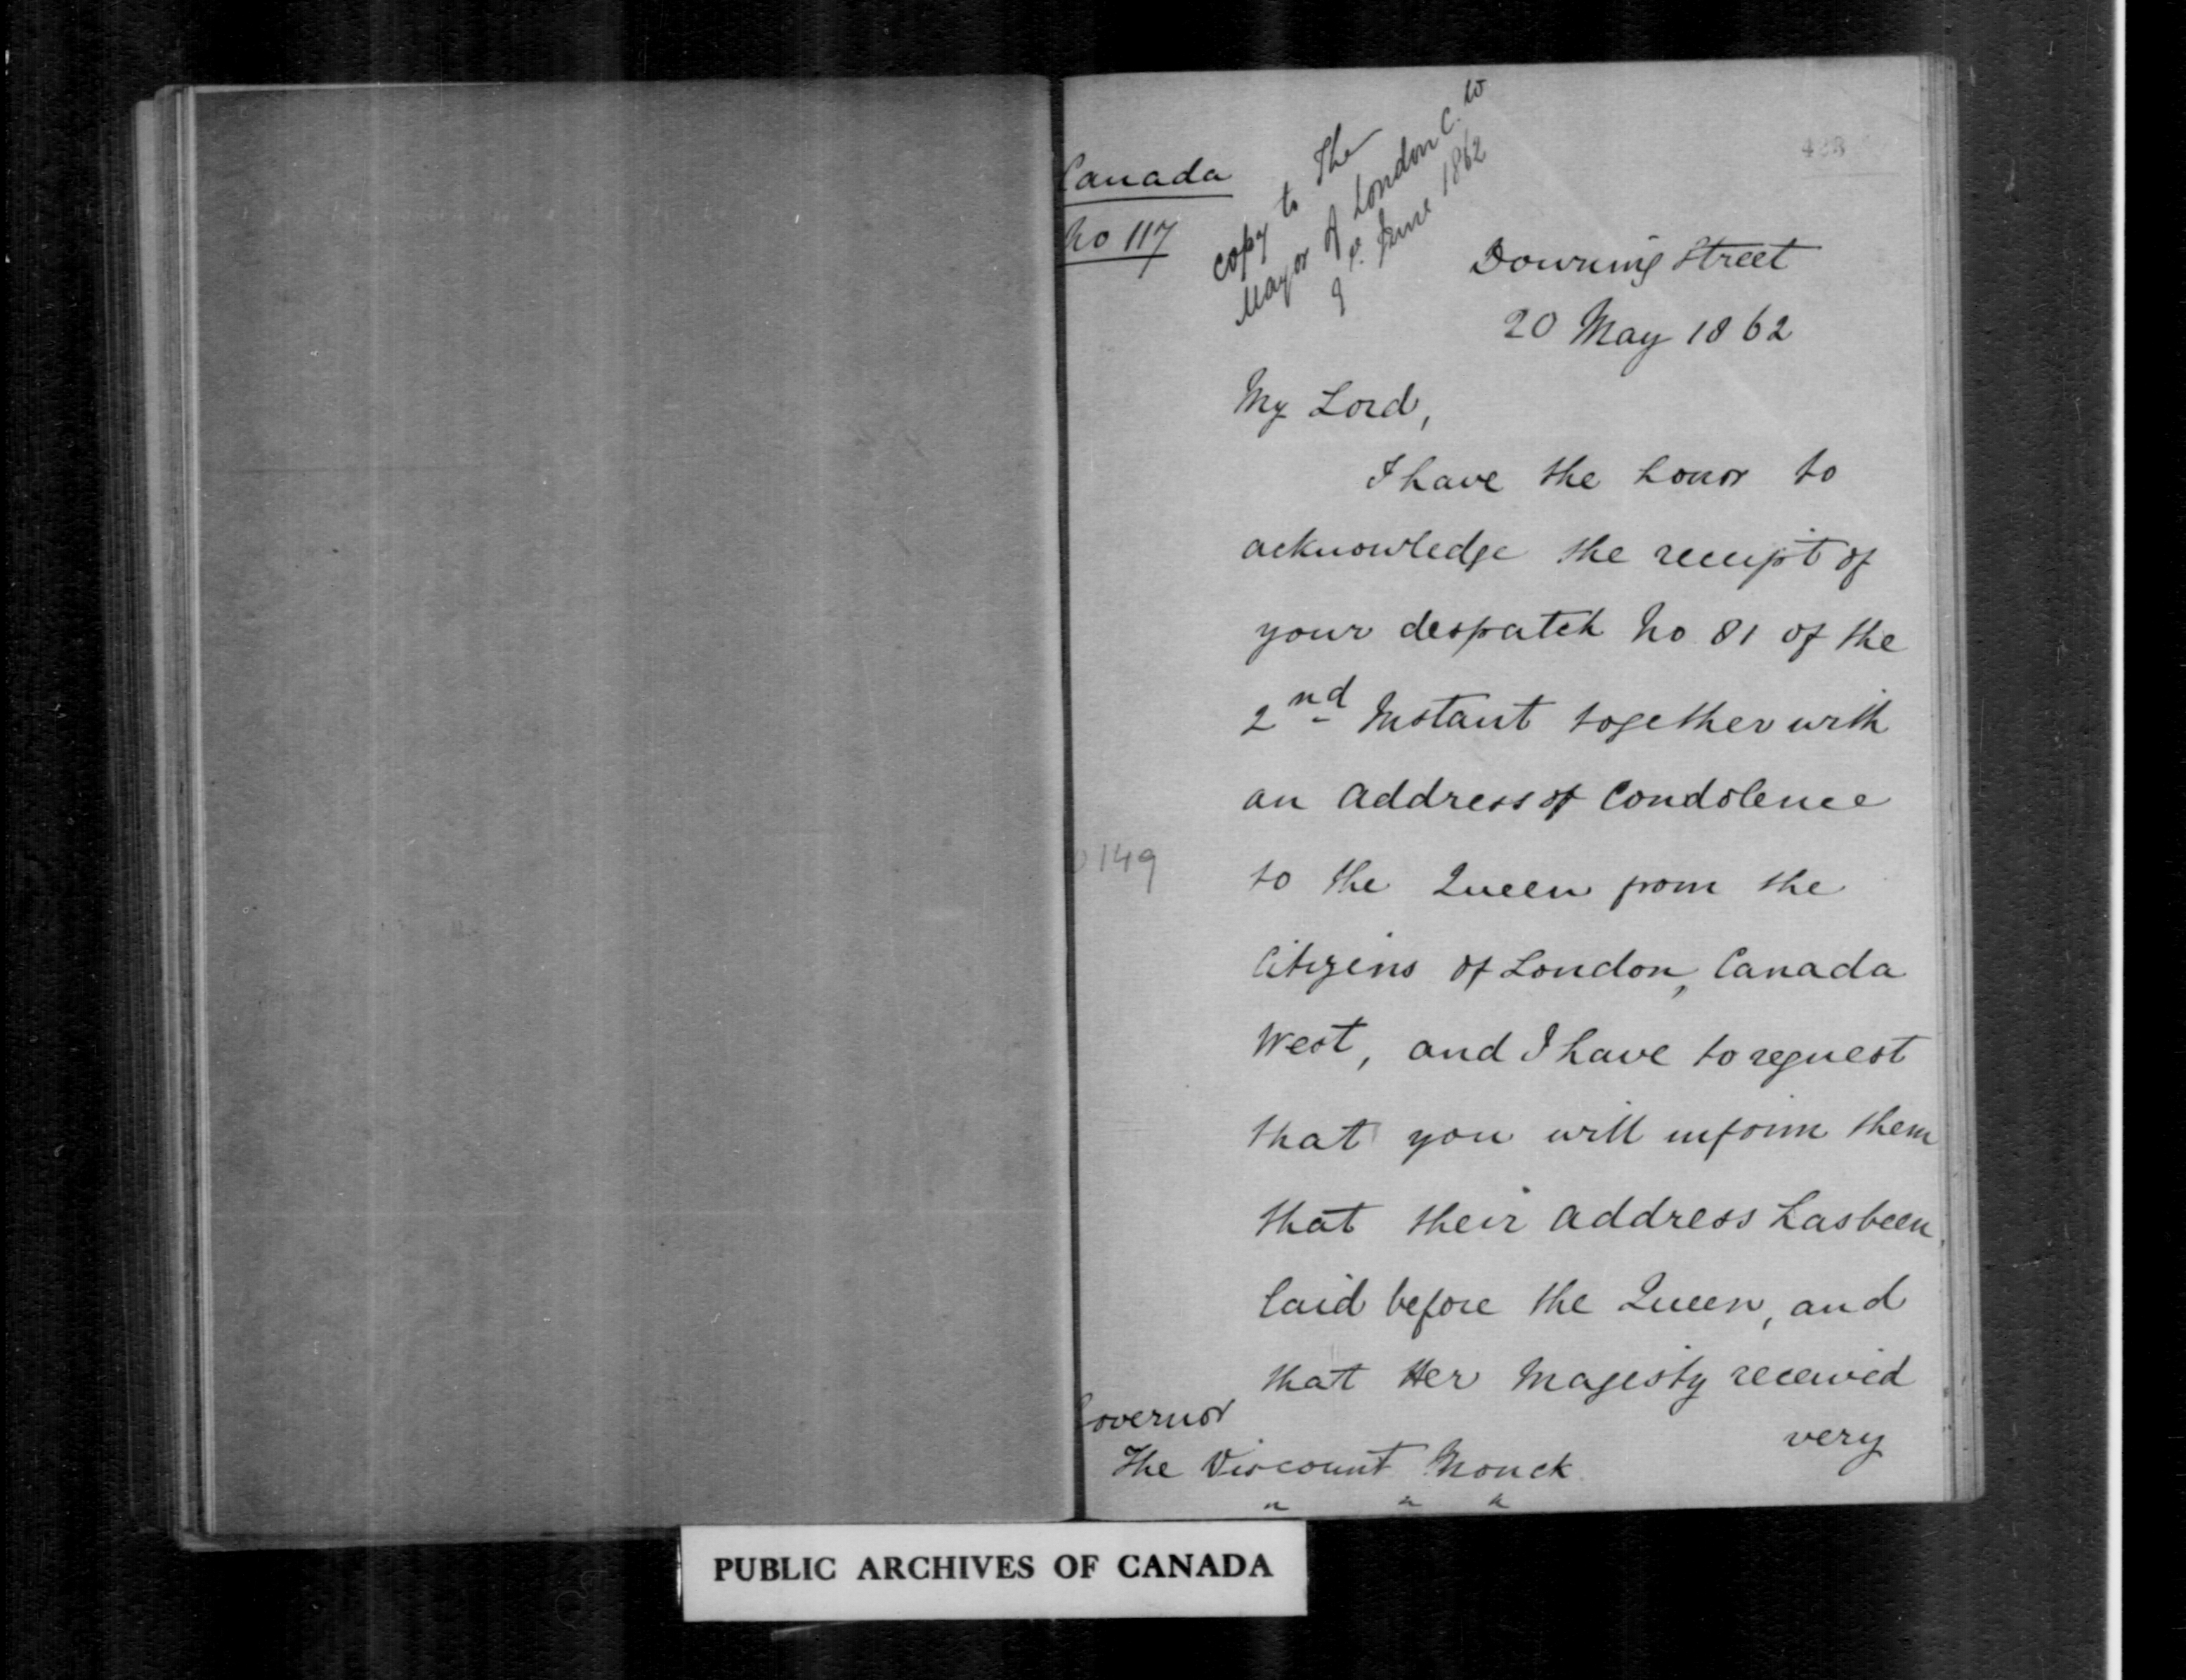 Canada
No 117
copy to The
Mayor of London C. W
9 June 1862
Downing Street
20 May 1862
My Lord,
I have the honor to
acknowledge the receipt of
your despatch No 81 of the
2nd Instant together with
an Address of Condolence
to the Queen from the
149
Citizens of London, Canada
West, and I have to request
that you will inform them
that their Address has been
laid before the Queen, and
that Her Magesty received
very
Governor
The Viscount Monck
" " "
PUBLIC ARCHIVES OF CANADA